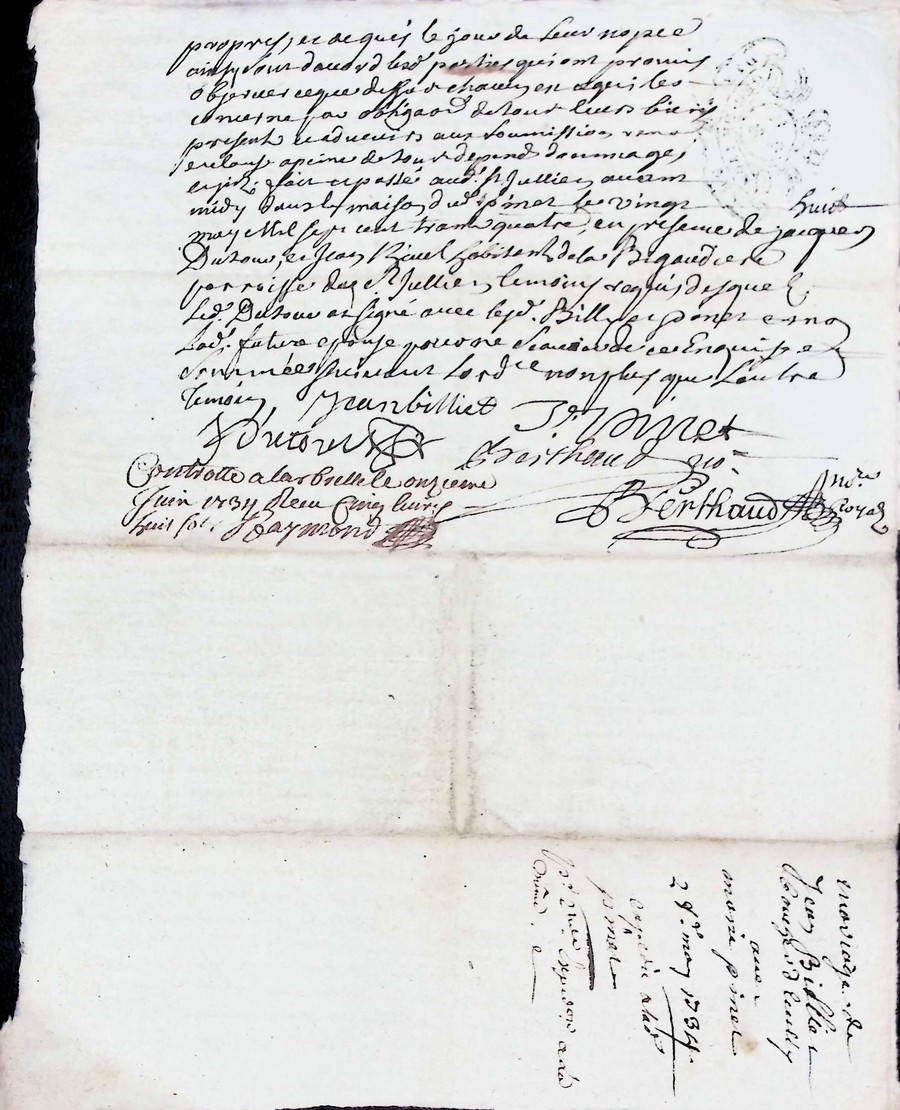 propres, et acquis le jour de leur nopce
ainsy sont d'acord lesd. parties qui ont promis
observer ce que dessus chacun en ce qui les
concerne par obligaõn de tous leurs biens
present et advenirs aux soumissions reno
et claus. a peine de tous depend dommages
fait et passé aud. St Jullien avant
midy dans la maison du pinet le vingt huit
may Mil sept cent trante quatre, en presence de jacques
Dutour, et jean habitent de la Bigaudiere
parroisse dud. St Jullien temoins requis desquel
Led. Dutour a signé avec lesd. Billiet et pinet et no
Lad. future epouse pour ne scavoir de ce Enquise et
Sommées suivant Lord.ce non plus que L'autre
temoin Jean billiet pinet
Dutour Berthaud
Controllé a larbrelle le onzieme
Juin 1734 Reçu Cinq livres
huit sols Raymond
Berthaud Nore Royal
mariage de
Jean Billiet
avec
marie pinet
28e may 1734
expédié a lad
pinet